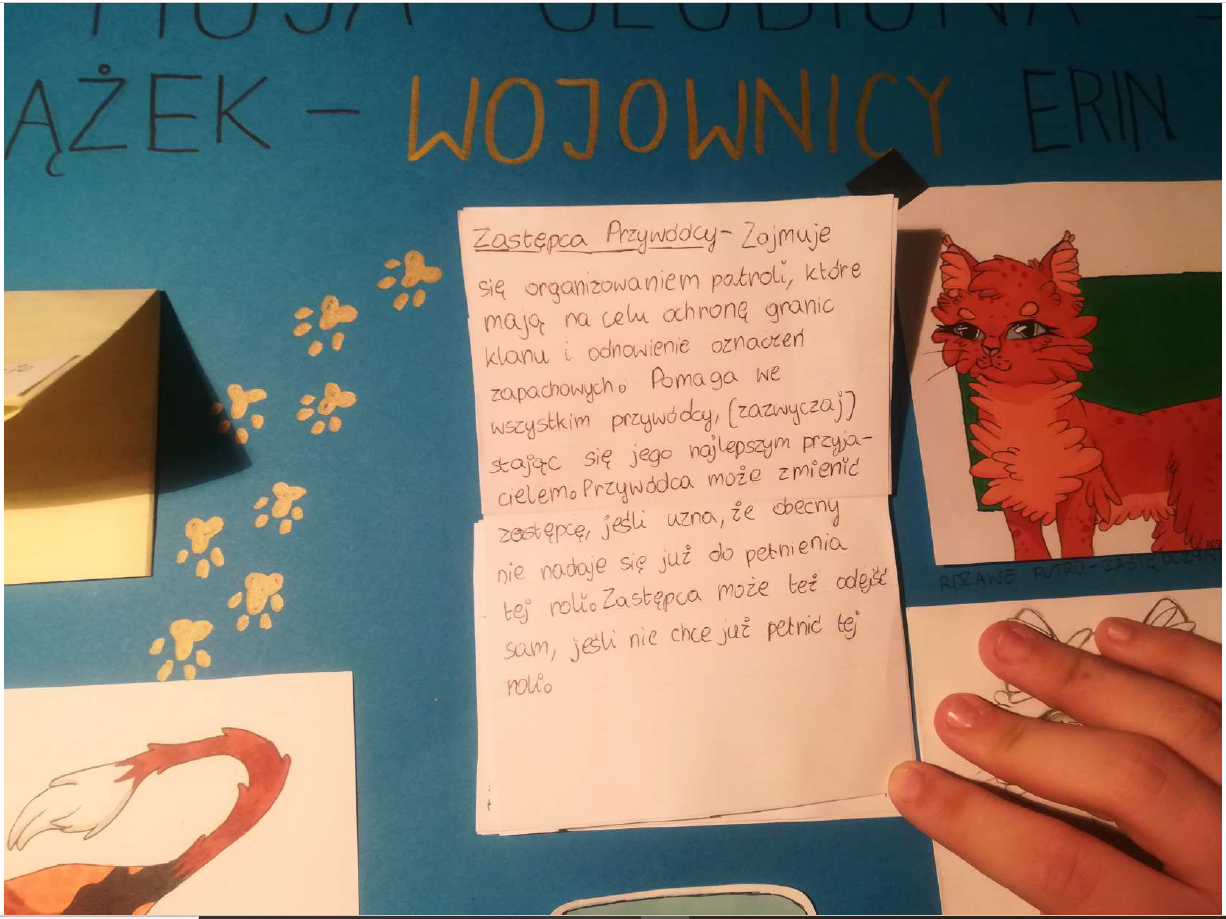 MOJA ULUBIONA
ĄŻEK - WOJOWNICY ERIN
Zastępca Przywódcy - Zajmuje
się organizowaniem patroli, które
mają na celu ochronę granic
klanu i odnowienie oznaczeń
zapachowych. Pomaga we
wszystkim przywódcy, (zazwyczaj)
stając się jego najlepszym przyja-
cielem. Przywódca może zmienić
zastępcę, jeśli uzna, że obecny
nie nadaje się już do pełnienia
tej roli. Zastępca może też odejść
sam, jeśli nie chce już pełnić tej
roli.
RDZAWE FUTRO - ZASTĘPCZYN